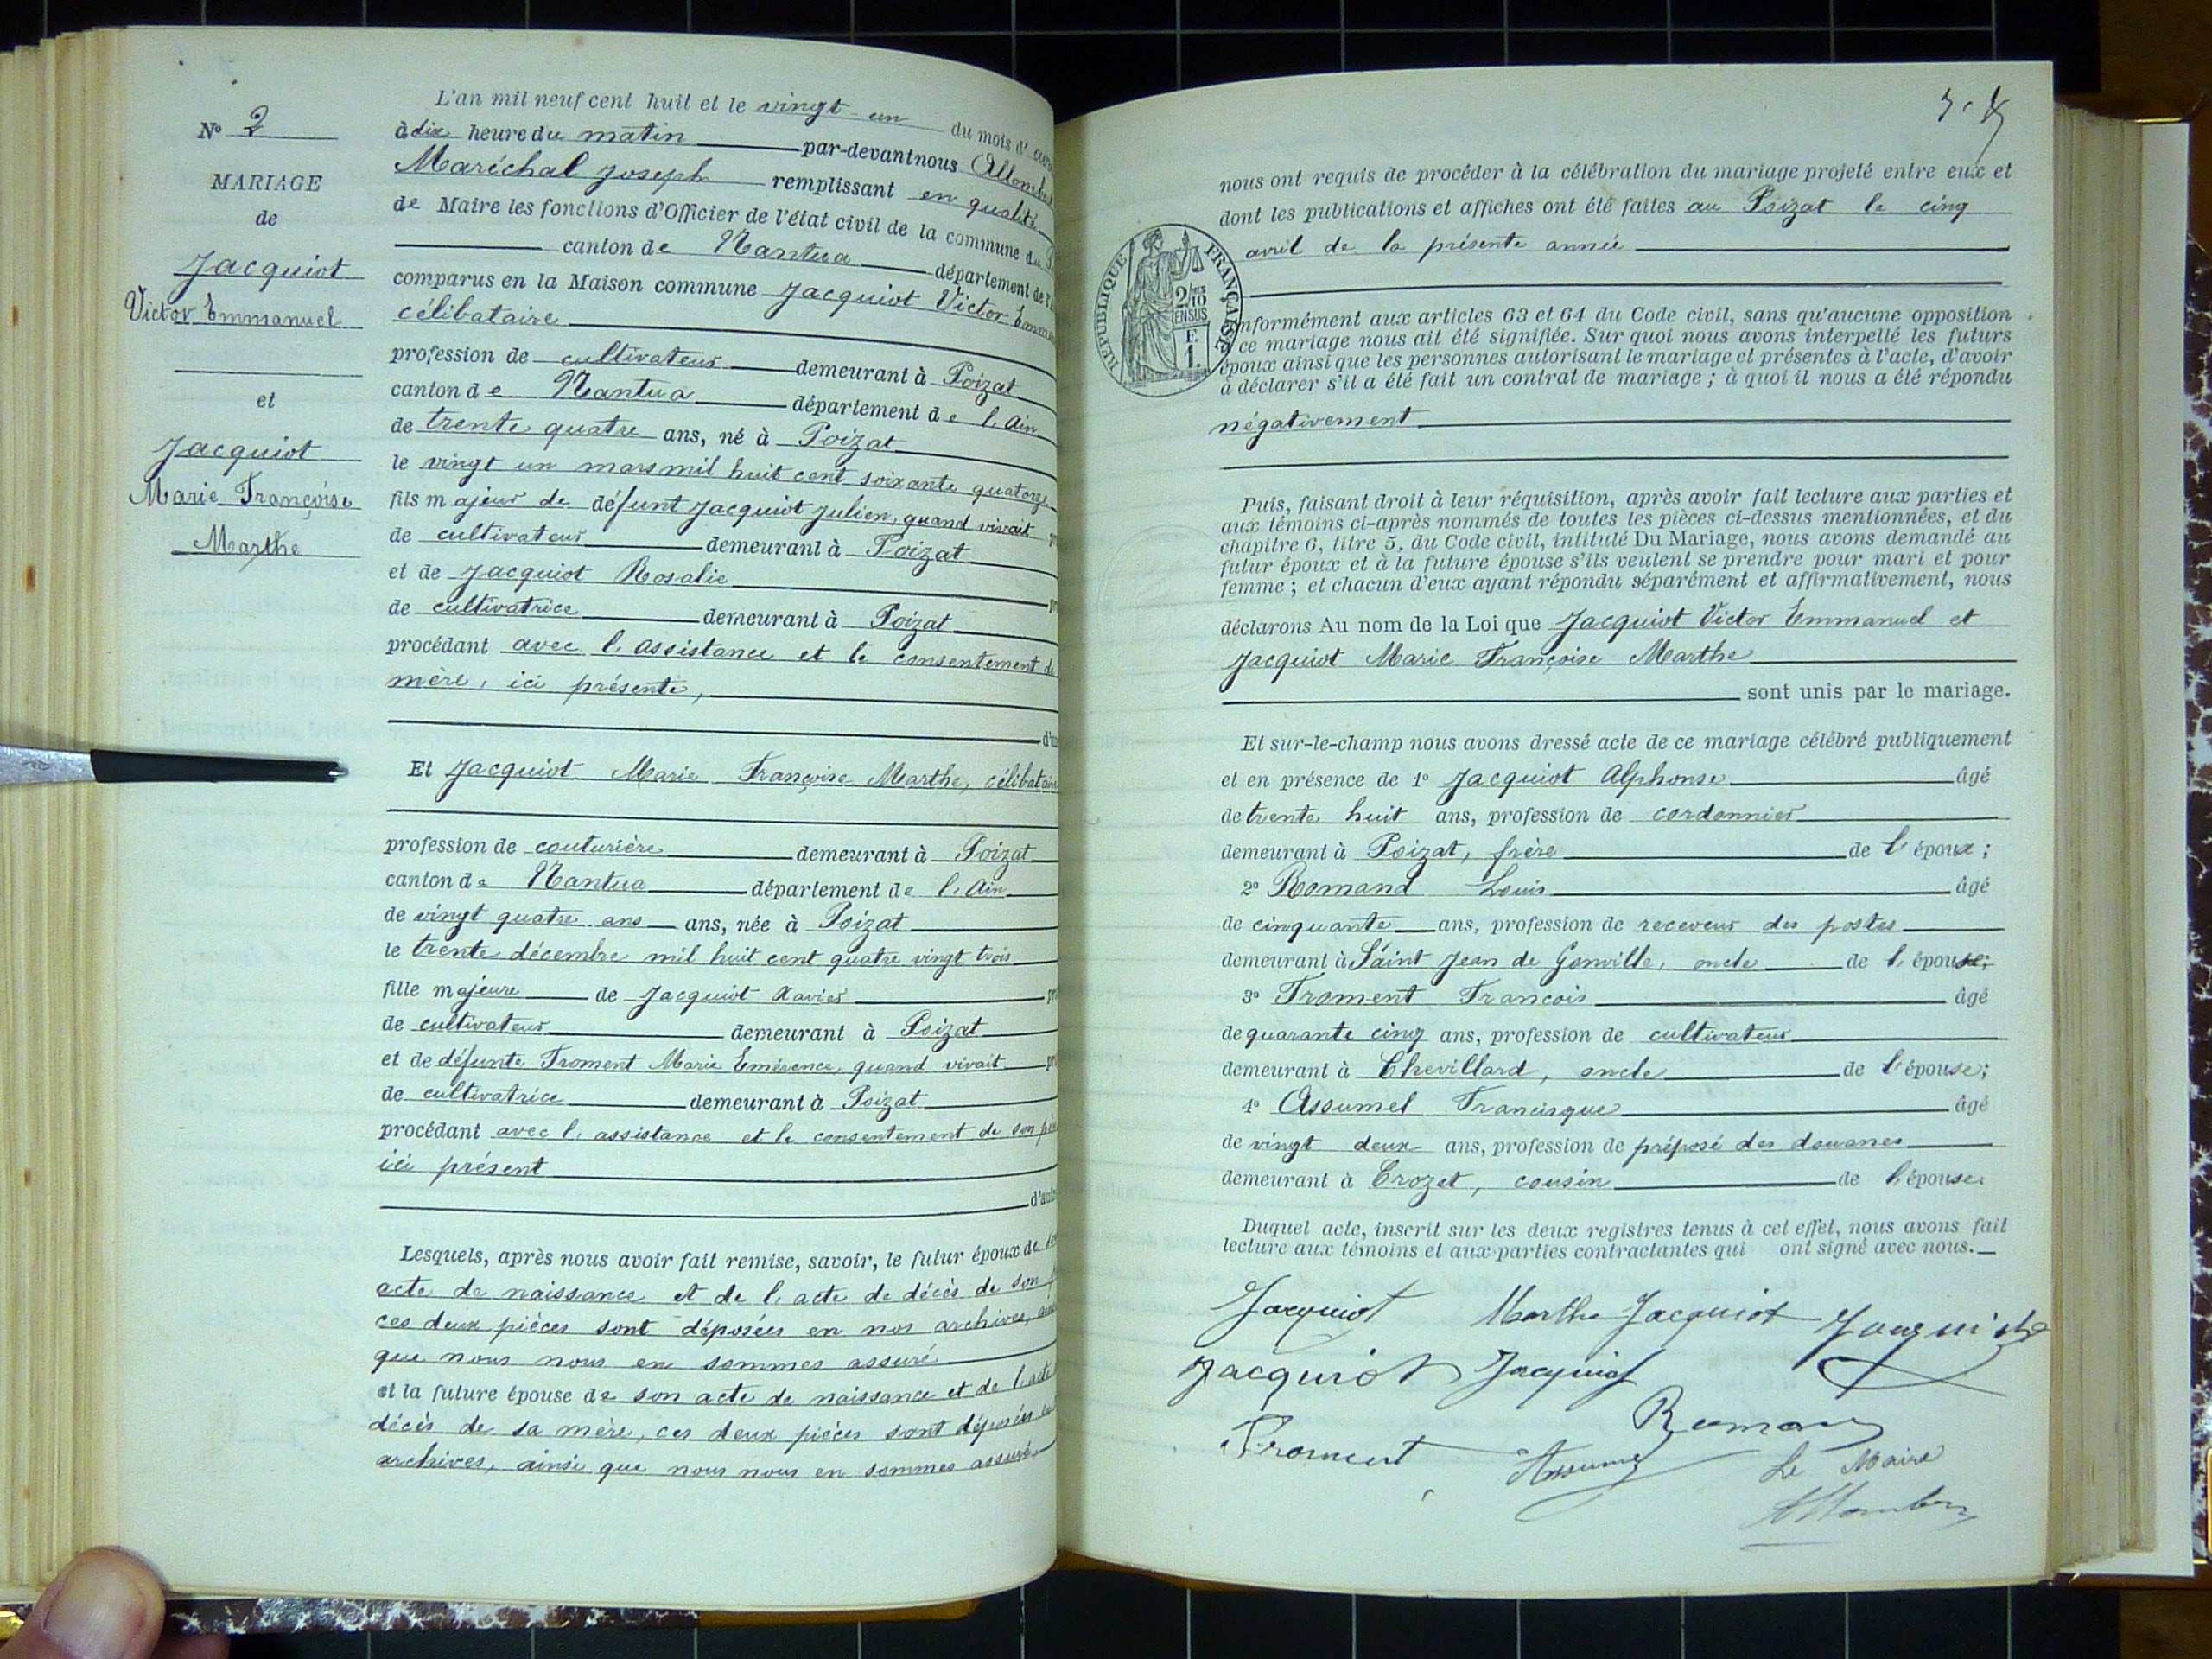 N° 2
MARIAGE
de
Jacquiot
Victor Emmanuel
et
Jacquiot
Marie Françoise
Marthe
L'an mil neuf cent huit et le vingt-un du mois d'
à dix heure du matin par-devant nous
Maréchal Joseph remplissant en qualité
de Maire les fonctions d'Officier de l'état civil de la commune du
canton de Nantua département de l'
comparus en la Maison commune Jacquiot Victor
célibataire
profession de cultivateur demeurant à Poizat
canton de Nantua département de l'Ain
de trente quatre ans, né à Poizat
le vingt un mars mil huit cent soixante quatorze
fils majeur de défunt Jacquiot Julien, quand vivait
de cultivateur demeurant à Poizat
et de Jacquiot Rosalie
de cultivatrice demeurant à Poizat
procédant avec l'assistance et le consentement de
mère, ici présente,
Et Jacquiot Marie Françoise Marthe, célibataire
profession de couturière demeurant à Poizat
canton de Nantua département de l'Ain
de vingt quatre ans ans, née à Poizat
le trente décembre mil huit cent quatre vingt trois
fille majeure de Jacquiot Xavier
de cultivateur demeurant à Poizat
et de défunte Froment Marie Emérence, quand vivait
de cultivatrice demeurant à Poizat
procédant avec l'assistance et le consentement de son père
ici présent
Lesquels, après nous avoir fait remise, savoir, le futur époux de
acte de naissance et de l'acte de décès de son
ces deux pièces sont déposées en nos archives,
que nous nous en sommes assuré
et la future épouse de son acte de naissance et de l'acte
décès de sa mère, ces deux pièces sont déposées
archives, ainsi que nous nous en sommes assuré
nous ont requis de procéder à la célébration du mariage projeté entre eux et
dont les publications et affiches ont été faites au Poizat le cinq
avril de la présente année
RÉPUBLIQUE FRANÇAISE
2/10
EN SUS
F.
1.
conformément aux articles 63 et 64 du Code civil, sans qu'aucune opposition
à ce mariage nous ait été signifiée. Sur quoi nous avons interpellé les futurs
époux ainsi que les personnes autorisant le mariage et présentes à l'acte, d'avoir
à déclarer s'il a été fait un contrat de mariage ; à quoi il nous a été répondu
négativement
Puis, faisant droit à leur réquisition, après avoir fait lecture aux parties et
aux témoins ci-après nommés de toutes les pièces ci-dessus mentionnées, et du
chapitre 6, titre 5, du Code civil, intitulé Du Mariage, nous avons demandé au
futur époux et à la future épouse s'ils veulent se prendre pour mari et pour
femme ; et chacun d'eux ayant répondu séparément et affirmativement, nous
déclarons Au nom de la Loi que Jacquiot Victor Emmanuel et
Jacquiot Marie Françoise Marthe
sont unis par le mariage.
Et sur-le-champ nous avons dressé acte de ce mariage célébré publiquement
et en présence de 1° Jacquiot Alphonse âgé
de trente huit ans, profession de cordonnier
demeurant à Poizat, frère de l'époux ;
2° Romand Louis âgé
de cinquante ans, profession de receveur des postes
demeurant à Saint Jean de Gonville, oncle de l'épouse;
3° Froment Francois âgé
de quarante cinq ans, profession de cultivateur
demeurant à Chevillard, oncle de l'épouse;
4° Assumel Francisque âgé
de vingt deux ans, profession de préposé des douanes
demeurant à Crozet, cousin de l'épouse.
Duquel acte, inscrit sur les deux registres tenus à cet effet, nous avons fait
lecture aux témoins et aux parties contractantes qui ont signé avec nous.
Jacquiot Marthe Jacquiot Jacquiot
Jacquiot Jacquiot
Romand
Froment Assumel Le Maire